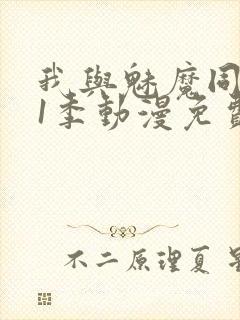 我與魅魔同
1季動漫免費
不二原理夏